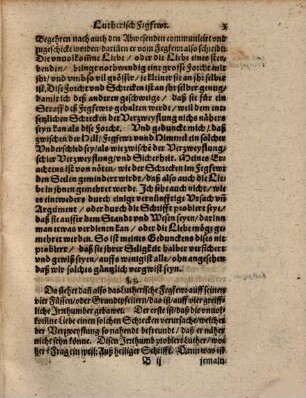 Lutherisch Fegfewr. 3
Begehren nach auch den Abwesenden communicirt vnd
zugeschickt worden / darinn er vom Fegfewr also schreibt:
Die vnuolkomne Liebe / oder die Liebe eines ster-
benden / bringt nothwendig ein grosse Forcht mit
jhr / vnd vmb so vil grösser / je kleiner sie an jhr selbst
ist. Dise Forcht vnd Schrecken ist an jhr selber genug /
damit ich deß anderen geschweige / daß sie für ein
Straff deß Fegfewrs gehalten werde / weil dem ent-
setzlichen Schrecken der Verzweyflung nichts nähers
seyn kan als dise Forcht. Vnd geduncket mich / daß
zwischen der Hell / Fegfewr vnnd Himmel ein solcher
Vnderschied sey / als wie zwischē der Verzweyflung /
schier Verzweyflung / vnd Sicherheit. Meines Er-
achtens ist von nöten / wie der Schrecken im Fegfewr
den Seelen gemindert wirdt / daß also auch die Liebe
in jhnen gemehret werde. Ich sihe auch nicht / wie
es eintweders durch einige vernünfftige Vrsach vñ
Argument / oder durch die Schrifft probiert sey /
daß sie ausser dem Stande vnd Wesen seyen / darinn
man etwas verdienen kan / oder die Liebe möge ge-
mehret werden. So ist meines Gedunckens diß nit
probiert / daß sie jhrer Seligkeit halber versichert
vnd gewiß seyen / auffs wenigist alle / ohn angesehen
daß wir solches gäntzlich vergwist seyn.
Da stehet daß also das Lutherische Fegfewr auff seinen
vier Füssen / oder Grundtpfeilern / das ist / auff vier greiffli-
che Jrrthumber gebawet. Der erste ist / daß die vnuol-
komne Liebe einen solchen Schrecken verursache / welcher
der Verzweyflung so nahendt befreundt / daß er näher
nicht seyn könne. Disen Jrrthumb probiert Luther / wo-
her? Frag ein weil: Auß heiliger Schrifft. Dann was ist
B ij jemaln